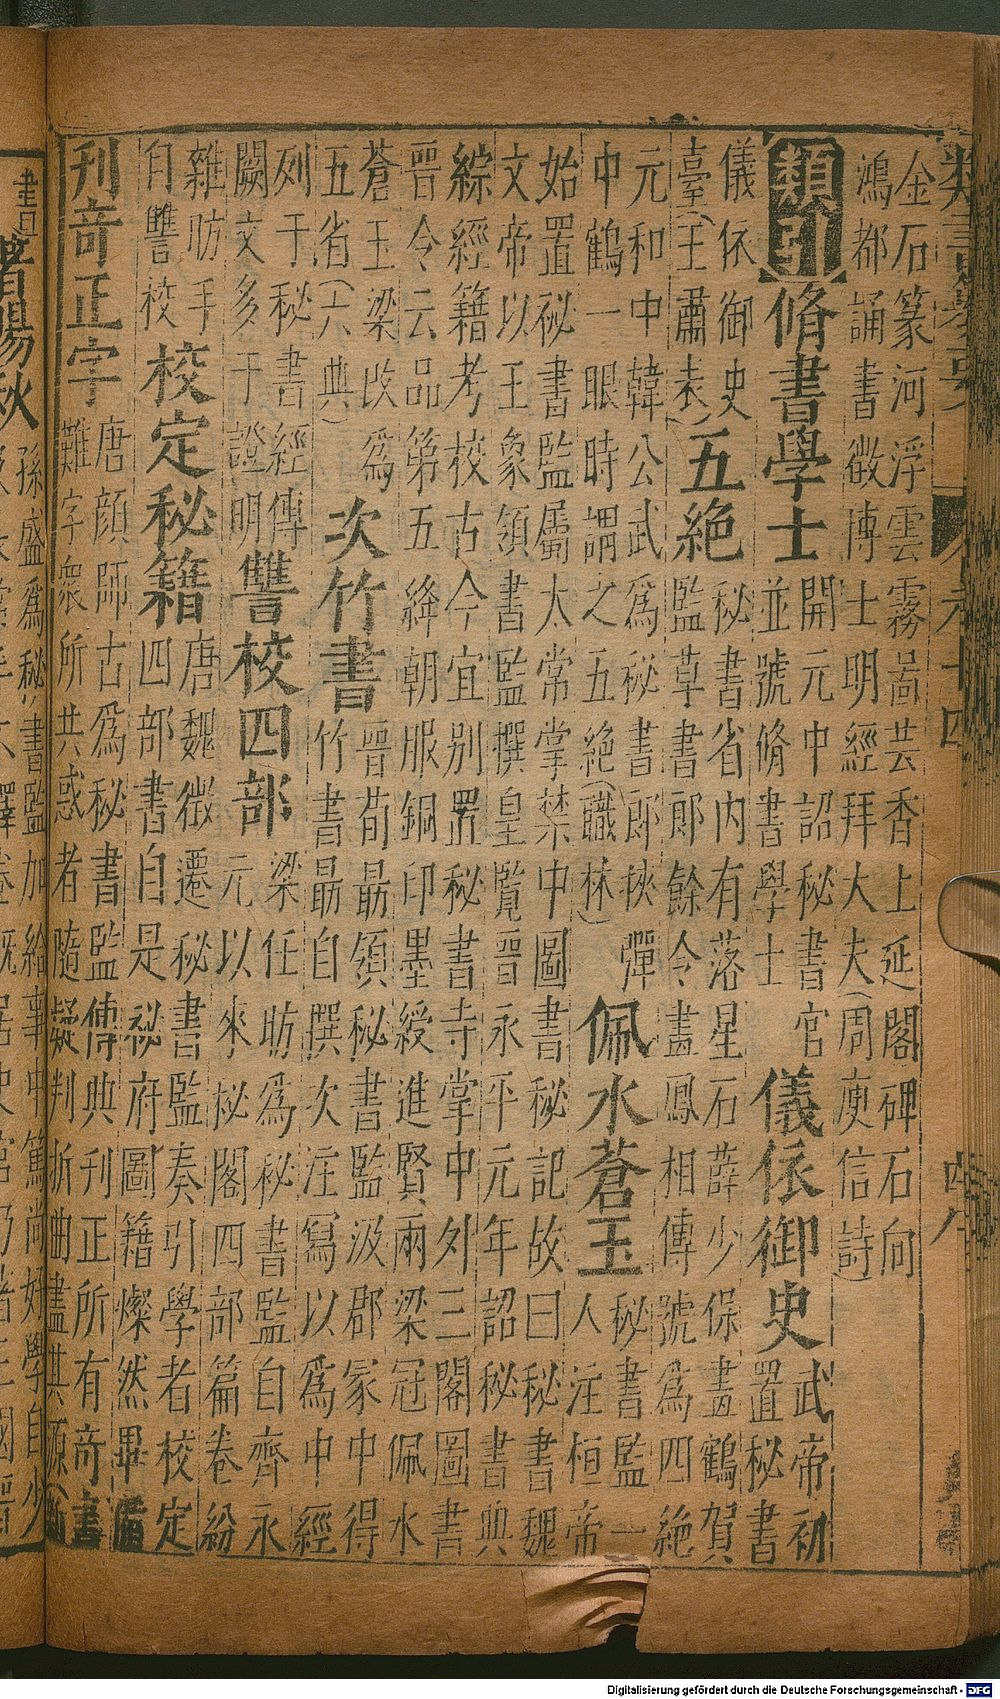 金石篆河浮雲霧嵓芸香上延閣碑石向
鴻都誦書徵博士明經拜大夫(周庾信詩)
類引
脩書學士
開元中詔秘書官
並號脩書學士
儀依御史
武帝初
置秘書
儀依御史
臺(王肅表)
五絕
秘書省内有落星石薛少保畫鶴賀
監草書郎餘令畫鳳相傳號爲四絕
元和中韓公武爲秘書郎挾彈
中鶴一眼時謂之五絕(職林)
佩水蒼玉
秘書監一
人注桓帝
始置秘書監屬太常掌禁中圖書秘記故曰秘書魏
文帝以王象領書監撰皇覽晉永平元年詔秘書典
綜經籍考校古今宜别置秘書寺掌中外三閣圖書
晉令云品第五絳朝服銅印墨綬進賢兩梁冠佩水
蒼玉梁改爲
五省(六典)
次竹書
晉荀勗領秘書監汲郡冢中得
竹書勗自撰次注寫以爲中經
列于秘書經傳
闕文多于證明
讐校四部
梁任昉爲秘書監自齊永
元以來秘閣四部篇卷紛
雜昉手
自讐校
校定秘籍
唐魏徵遷秘書監奏引學者校定
四部書自是秘府圖籍燦然畢備
刋竒正字
唐顔師古爲秘書監傅典刋正所有竒書
難字衆所共惑者隨疑判析曲盡其源
著陽秋
孫盛爲秘書監加給事中篤尚好學自少
Digitalisierung gefördert durch die Deutsche Forschungsgemeinschaft - DFG